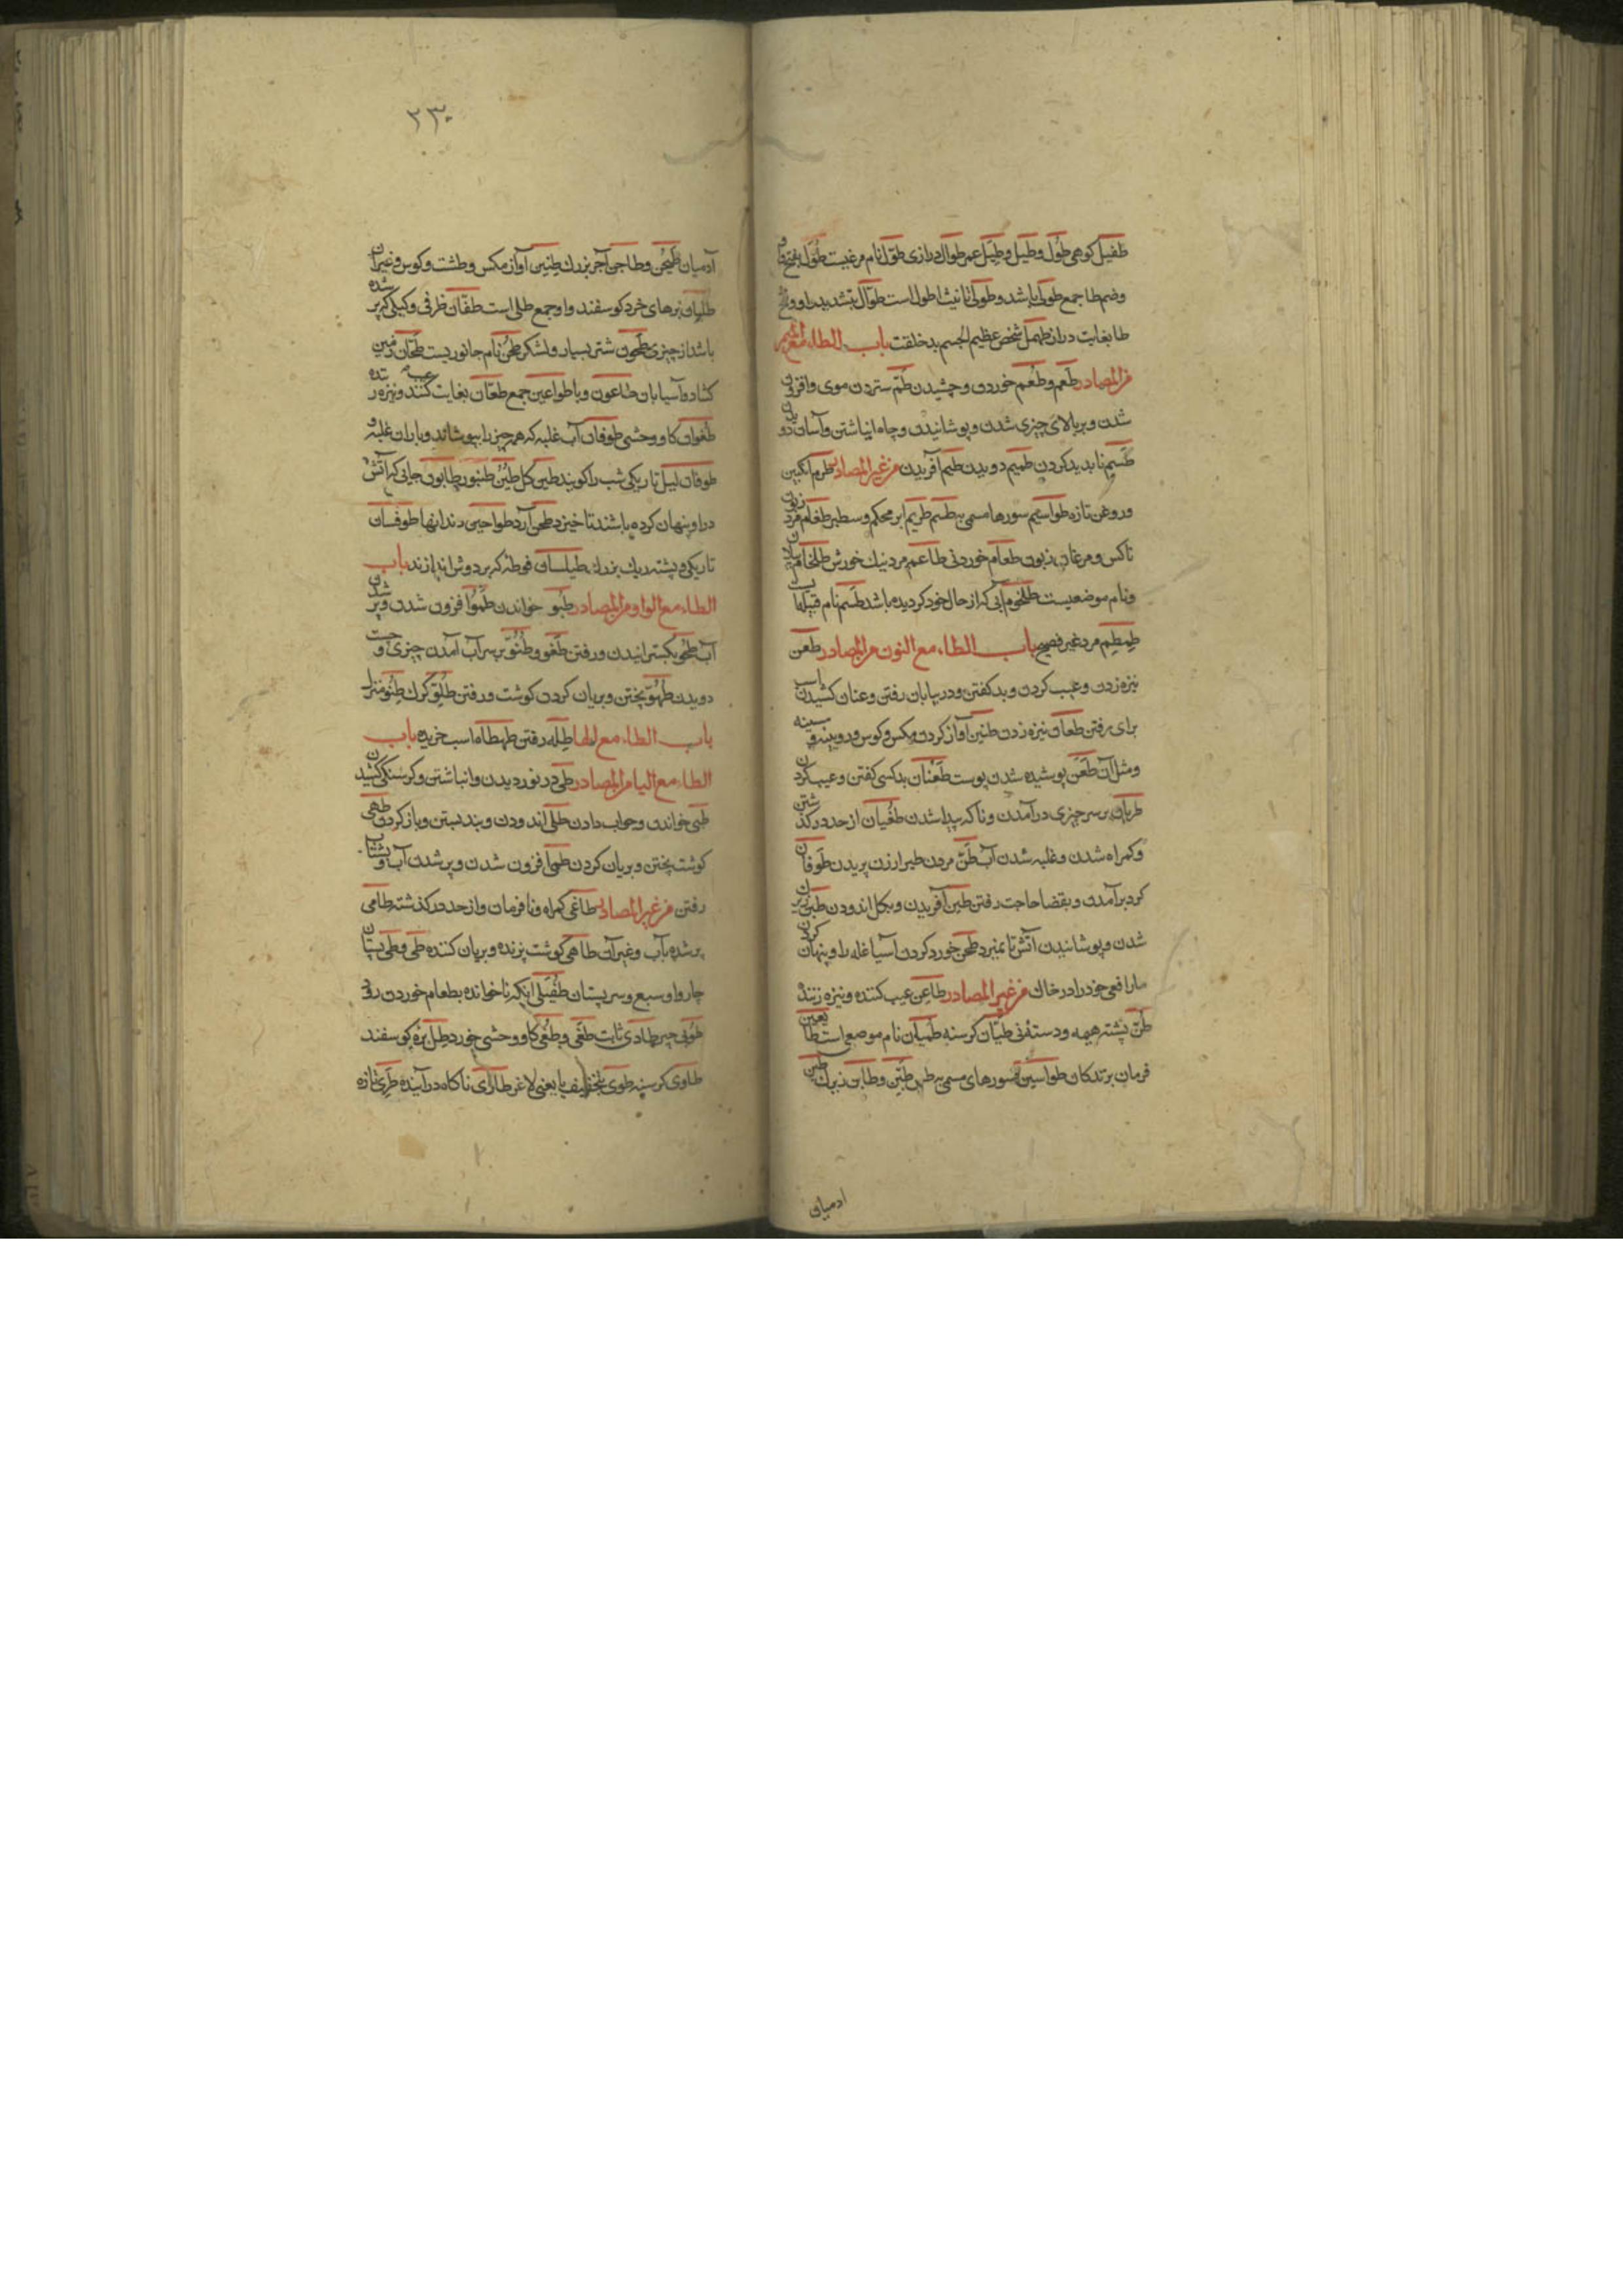 طفیل کوهی طُول و طیل و طِیَل عمر طوال درازی طوّل نام مرغیست طُوَل بفتح واو
وضم طا جمع طولی باشد و طولی تانیث اطول است طوّال بتشدید واو و فتح
طا بغایت دراز طهمل شخص عظیم الجسم بد خلقت باب الطاء مع المیم
من المصادر طَعم و طُعم خوردن و چشیدن طمّ ستردن موی و افزون
شدن و بر بالای چیزی شدن و پوشانیدن و چاه انباشتن و آسان دویدن
طسم نابدید کردن طمیم دویدن طیم آفریدن من غیر المصادر طرم انگبین
و روغن تازه طواسیم سورها مسمی به طسم طریم ابر محکم و سطبر طغام مردم زبون
ناکس و مرغان زبون طعام خوردنی طاعم مرد نیک خورش طلخام پیلان
و نام موضعیست طلخوم آبی که از حال خود کردیده باشد طسم نام قبیله ایست
طِمطِم مرد غیر فصیح باب الطاء مع النون من المصادر طعن
نیزه زدن و عیب کردن و بد کفتن و در بیابان رفتن و عنان کشیدن اسب
برای رفتن طعان نیزه زدن طنین آواز کردن مکس و کوس و رویینه و سینه
و مثل آن طَعَن پوشیده شدن پوست طَعَنان بد کسی کفتن و عیب کردن
طریان بر سر چیزی در آمدن و ناکه پیدا شدن طغیان از حد در کذشتن
و کمراه شدن و غلبه شدن آب طنّ مردن طیران پریدن طوفان
کرد بر آمدن و بقضا حاجت رفتن طین آفریدن و بکل اندودن طبن زیرک
شدن و پوشانیدن آتش تا نمیرد طحن خورد کردن آسیا غله را و پنهان کردن
مار افعی خود را در خاک من غیر المصادر طاعن عیب کننده و نیزه زننده
طنّ پشته هیمه و دسته نی طیّان کرسنه طمیان نام موضعی است طایعین
فرمان برندکان طواسین سورهای مسمی به طس طَبِن و طابن زیرک طین
ادمیان
۲۳۰
آدمیان طَیجَن و طاجن آجر بزرک طنین آواز مکس و طشت و کوس و غیر آن
طلیان برهای خرد کوسفند و او جمع طلی است طفّان ظرفی و کیلی که پر شده
باشد از چیزی طحون شتر بسیار و لشکر طحن نام جانوریست طحّان زمین
کشاده و آسیابان طاعون وبا طواعین جمع طعّان بغایت عیب کننده و نیزه زننده
طغوان کاو وحشی طوفان آب غلبه که همه چیز را بپوشاند و باران غلبه و
طوفان لیل تاریکی شب را کویند طین کل طبن طنبور طابون جایی که آتش
در او پنهان کرده باشند تا خیزد طحن آرد طواحن دندانها طوفسان
تاریکی و پشته ریک بزرک طیلسان فوطه که بر دوش اندازند باب
الطاء مع الواو من المصادر طبو خواندن طموّ افزون شدن و پر شدن
آب طحو بکسترانیدن و رفتن طغو و طفو بر سر آب آمدن چیزی و جست
دویدن طهو پختن و بریان کردن کوشت و رفتن طلو کرک طنو منزل
باب الطاء مع الها طله رفتن طهطاه اسب خریده باب
الطاء مع الیا من المصادر طی در نوردیدن و انباشتن و کرسنکی کشیدن
طبی خواندن و جواب دادن طلی اندودن و بند بستن و باز کردن طهی
کوشت پختن و بریان کردن طمی افزون شدن و پر شدن آب و بشتاب
رفتن من غیر المصادر طاغی کمراه و نافرمان و از حد در کذشته طامی
پر شده بآب و غیر آن طاهی کوشت پزنده و بریان کننده طبی و طبی پستان
چاروا و سبع و سر پستان طفیلی آنکه ناخوانده بطعام خوردن رود
طوبی طادی ثابت طغی و طغی کاو وحشی خورد طلی بره کوسفند
طاوی کرسنه طوی بتخفیف یا یعنی لاغر طاری ناکاه در آینده طریّ تازه